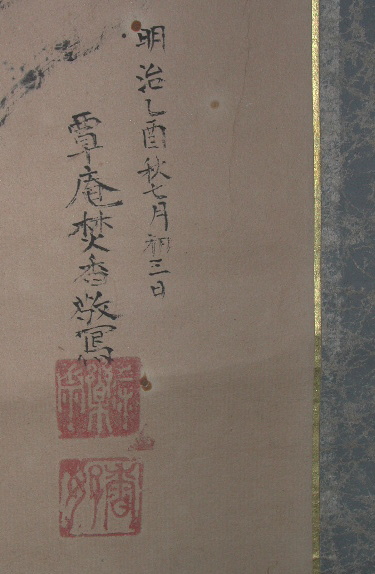 明治乙酉秋七月初三日
覃庵焚香敬寫